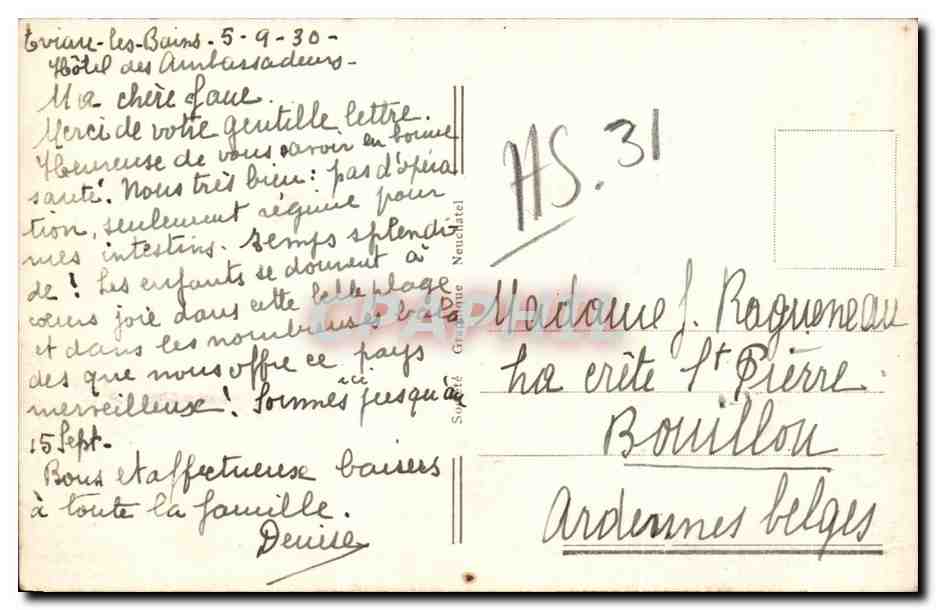 Evian-les-Bains - 5-9-30-
Hôtel des Ambassadeurs-
Ma chère Jane.
Merci de votre gentille lettre.
Heureuse de vous savoir en bonne
santé! Nous très bien: pas d'opéra
tion, seulement régime pour
mes intestins. Temps splendi-
de! Les enfants se donnent à
coeurs joie dans cette belle plage
et dans les nombreuses bala
des que nous offre ce pays
merveilleux! Sommes ici jusqu'au
15 Sept-
Bons et affectueux baisers
à toute la famille.
Denise
Société Graphique Neuchatel
AS. 31
Madame J. Ragueneau
La crête St Pierre
Bouillon
Ardennes belges